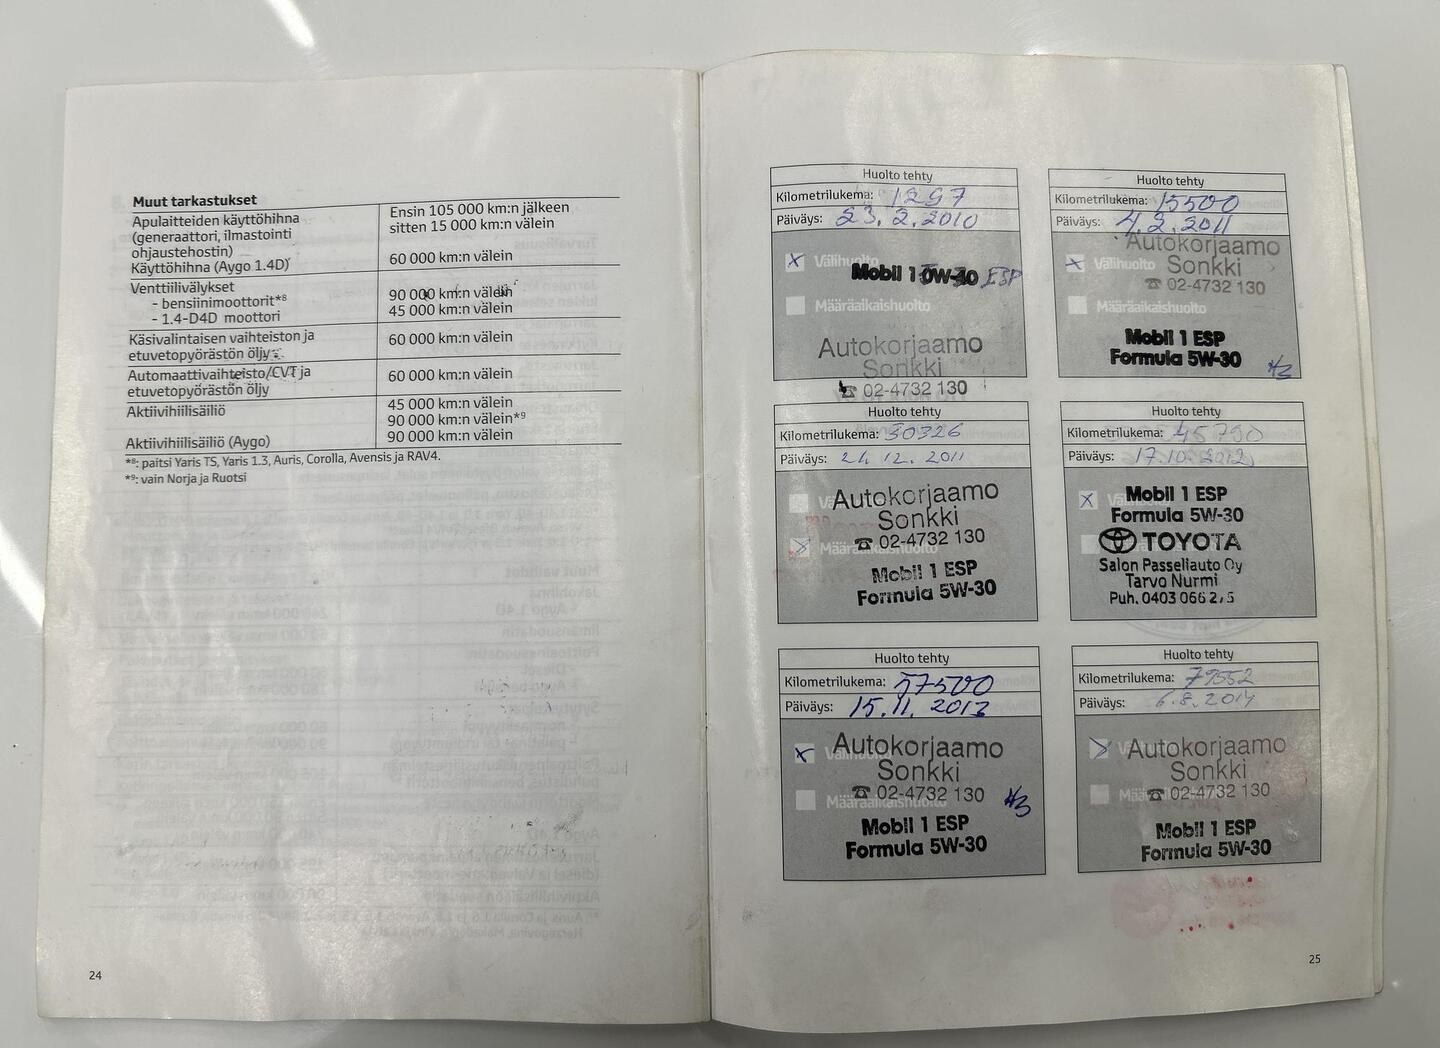 Muut tarkastukset
Apulaitteiden käyttöhihna
(generaattori, ilmastointi
ohjaustehostin)
Ensin 105 000 km:n jälkeen
sitten 15 000 km:n välein
Käyttöhihna (Aygo 1.4D)
60 000 km:n välein
Venttiilivälykset
- bensiinimoottorit*⁸
90 000 km:n välein
- 1.4-D4D moottori
45 000 km:n välein
Käsivalintaisen vaihteiston ja
etuvetopyörästön öljy
60 000 km:n välein
Automaattivaihteisto/CVT ja
etuvetopyörästön öljy
60 000 km:n välein
Aktiivihiilisäiliö
45 000 km:n välein
90 000 km:n välein*⁹
Aktiivihiilisäiliö (Aygo)
90 000 km:n välein
*⁸: paitsi Yaris TS, Yaris 1.3, Auris, Corolla, Avensis ja RAV4.
*⁹: vain Norja ja Ruotsi
24
Huolto tehty
Kilometrilukema: 1297
Päiväys: 23.2.2010
Välihuolto
Mobil 1 0W-40 ESP
Määräaikaishuolto
Autokorjaamo
Sonkki
☎ 02-4732 130
Huolto tehty
Kilometrilukema: 15500
Päiväys: 4.2.2011
Autokorjaamo
Välihuolto Sonkki
☎ 02-4732 130
Määräaikaishuolto
Mobil 1 ESP
Formula 5W-30
Huolto tehty
Kilometrilukema: 30326
Päiväys: 21.12.2011
Autokorjaamo
Sonkki
☎ 02-4732 130
Määräaikaishuolto
Mobil 1 ESP
Formula 5W-30
Huolto tehty
Kilometrilukema: 45790
Päiväys: 17.10.2012
Mobil 1 ESP
Formula 5W-30
TOYOTA
Salon Passeliauto Oy
Tarvo Nurmi
Puh. 0403 066 2
Huolto tehty
Kilometrilukema: 57500
Päiväys: 15.11.2013
Välihuolto
Autokorjaamo
Sonkki
☎ 02-4732 130
Määräaikaishuolto
Mobil 1 ESP
Formula 5W-30
Huolto tehty
Kilometrilukema: 79552
Päiväys: 6.8.2014
Autokorjaamo
Sonkki
☎ 02-4732 130
Mobil 1 ESP
Formula 5W-30
25